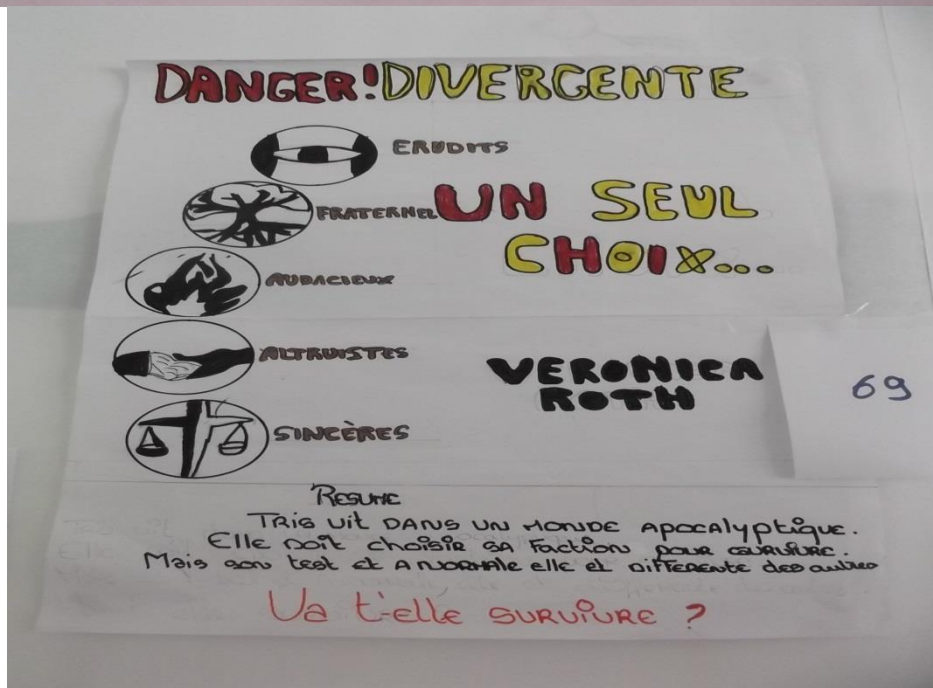 DANGER! DIVERGENTE
ERUDITS
FRATERNEL
UN SEUL
CHOIX...
AUDACIEUX
ALTRUISTES
VERONICA
ROTH
69
SINCÈRES
RESUME
TRIS Vit DANS UN MONDE APOCALYPTIQUE.
Elle DOÎT choisir SA Faction pour survivre.
Mais son test et ANORMALE elle et DIFFERENTE des autres
Va t'elle SURVIVRE ?